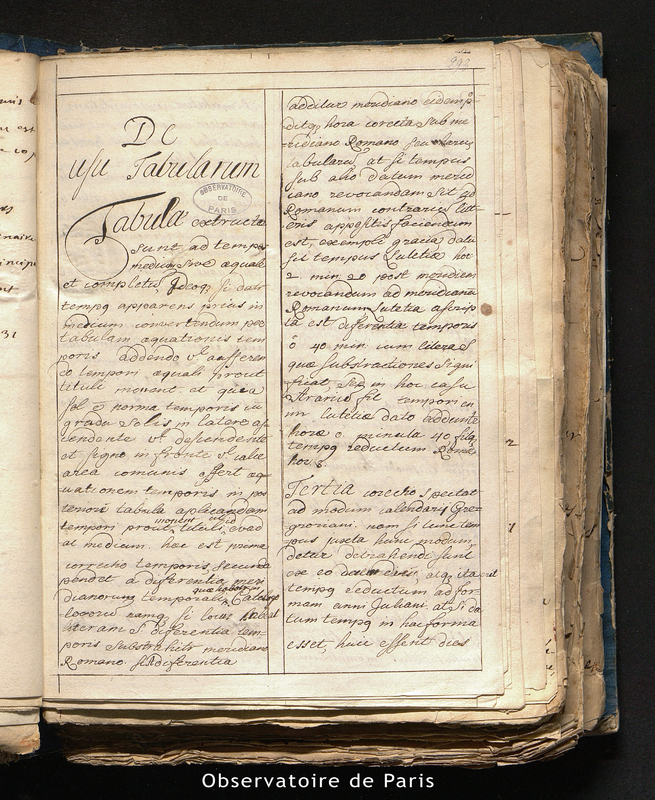 De
usu Tabularum
OBSERVATOIRE
DE
PARIS
Tabulæ extructæ
sunt, ad tempus
medium sive æquale
et completū, Ideoq; si datū
tempq apparens prius in
medium convertendum per
tabulam æquationis tem
poris addendo vl aufferen
do tempori æquali prout
tituli monent et quia
sol ē norma temporis cū
gradu Solis in latere as
cendente vl descendente
et signo in fronte vl calce
area comunis offert æq
uationem temporis in pos
teriori tabula aplicandam
monent
tempori prout tituli, evad
at medium. hæc est prima
correctio temporis, secunda
pendet a diferentia meri
dianorum temporalis, quā habet Catalogq
locorū namq; si locus habeat
literam S diferentia tem
poris substrahitr meridiano
Romano si A diferentia
242
additur meridiano eidemq;
ditq; hora correcta sub me
ridiano Romano seu
tabularū, at si tempus
sub alio datum meridi
ano revocandam sit ad
Romanum contrariū litt
eris appositis faciendum
est, exempli gracia datū
sit tempus Lutetiæ hor
2. min. 20 post meridiem
revocandum ad meridianū
Romanum Lutetiæ ascrip
ta est diferentia temporis
0 40 min. cum litera S
quæ substractionem signi
ficat, sed in hoc casu
contrariū fit tempori en
im Lutetiæ dato addunte
horæ 0. minuta 40 fitq;
tempq reductum Romæ
hor 3.
Tertia correctio spectat
ad modum calendarij Gre
goriani. nam si
tempus juxta hunc modum
detur detrahendi sunt
ex eo dati dies atq; ita erit
tempq reductum ad for
mam anni Juliani. at si da
tum tempq in hac forma
esset, huic essent dies
Observatoire de Paris